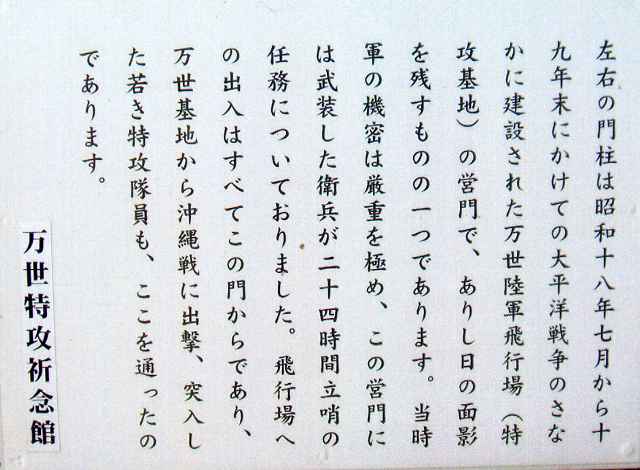 左右の門柱は昭和十八年七月から十
九年末にかけての大平洋戦争のさな
かに建設された万世陸軍飛行場（特
攻基地）の営門で、ありし日の面影
を残すものの一つであります。当時
軍の機密は厳重を極め、この営門に
は武装した衛兵が二十四時間立哨の
任務についておりました。飛行場へ
の出入はすべてこの門からであり、
万世基地から沖縄戦に出撃、突入し
た若き特攻隊員も、ここを通ったの
であります。
万世特攻祈念館